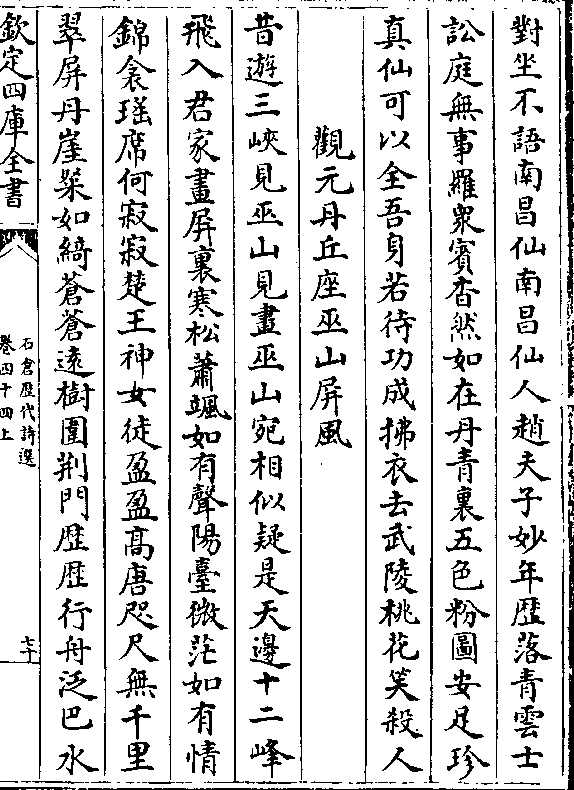 對坐不語南昌仙南昌仙人趙夫子妙年歴落青雲士
訟庭無事羅衆賔杳然如在丹青裏五色粉圖安足珍
真仙可以全吾身若待功成拂衣去武陵桃花笑殺人
觀元丹丘座巫山屏風
昔遊三峽見巫山見畫巫山宛相似疑是天邊十二峰
飛入君家畫屏裏寒松蕭颯如有聲陽臺微茫如有情
錦衾瑤席何寂寂楚王神女徒盈盈髙唐咫尺無千里
翠屏丹崖粲如綺蒼蒼遠樹圍荆門歴歴行舟泛巴水
欽定四庫全書
石倉歴代詩選
卷四十四上
七十